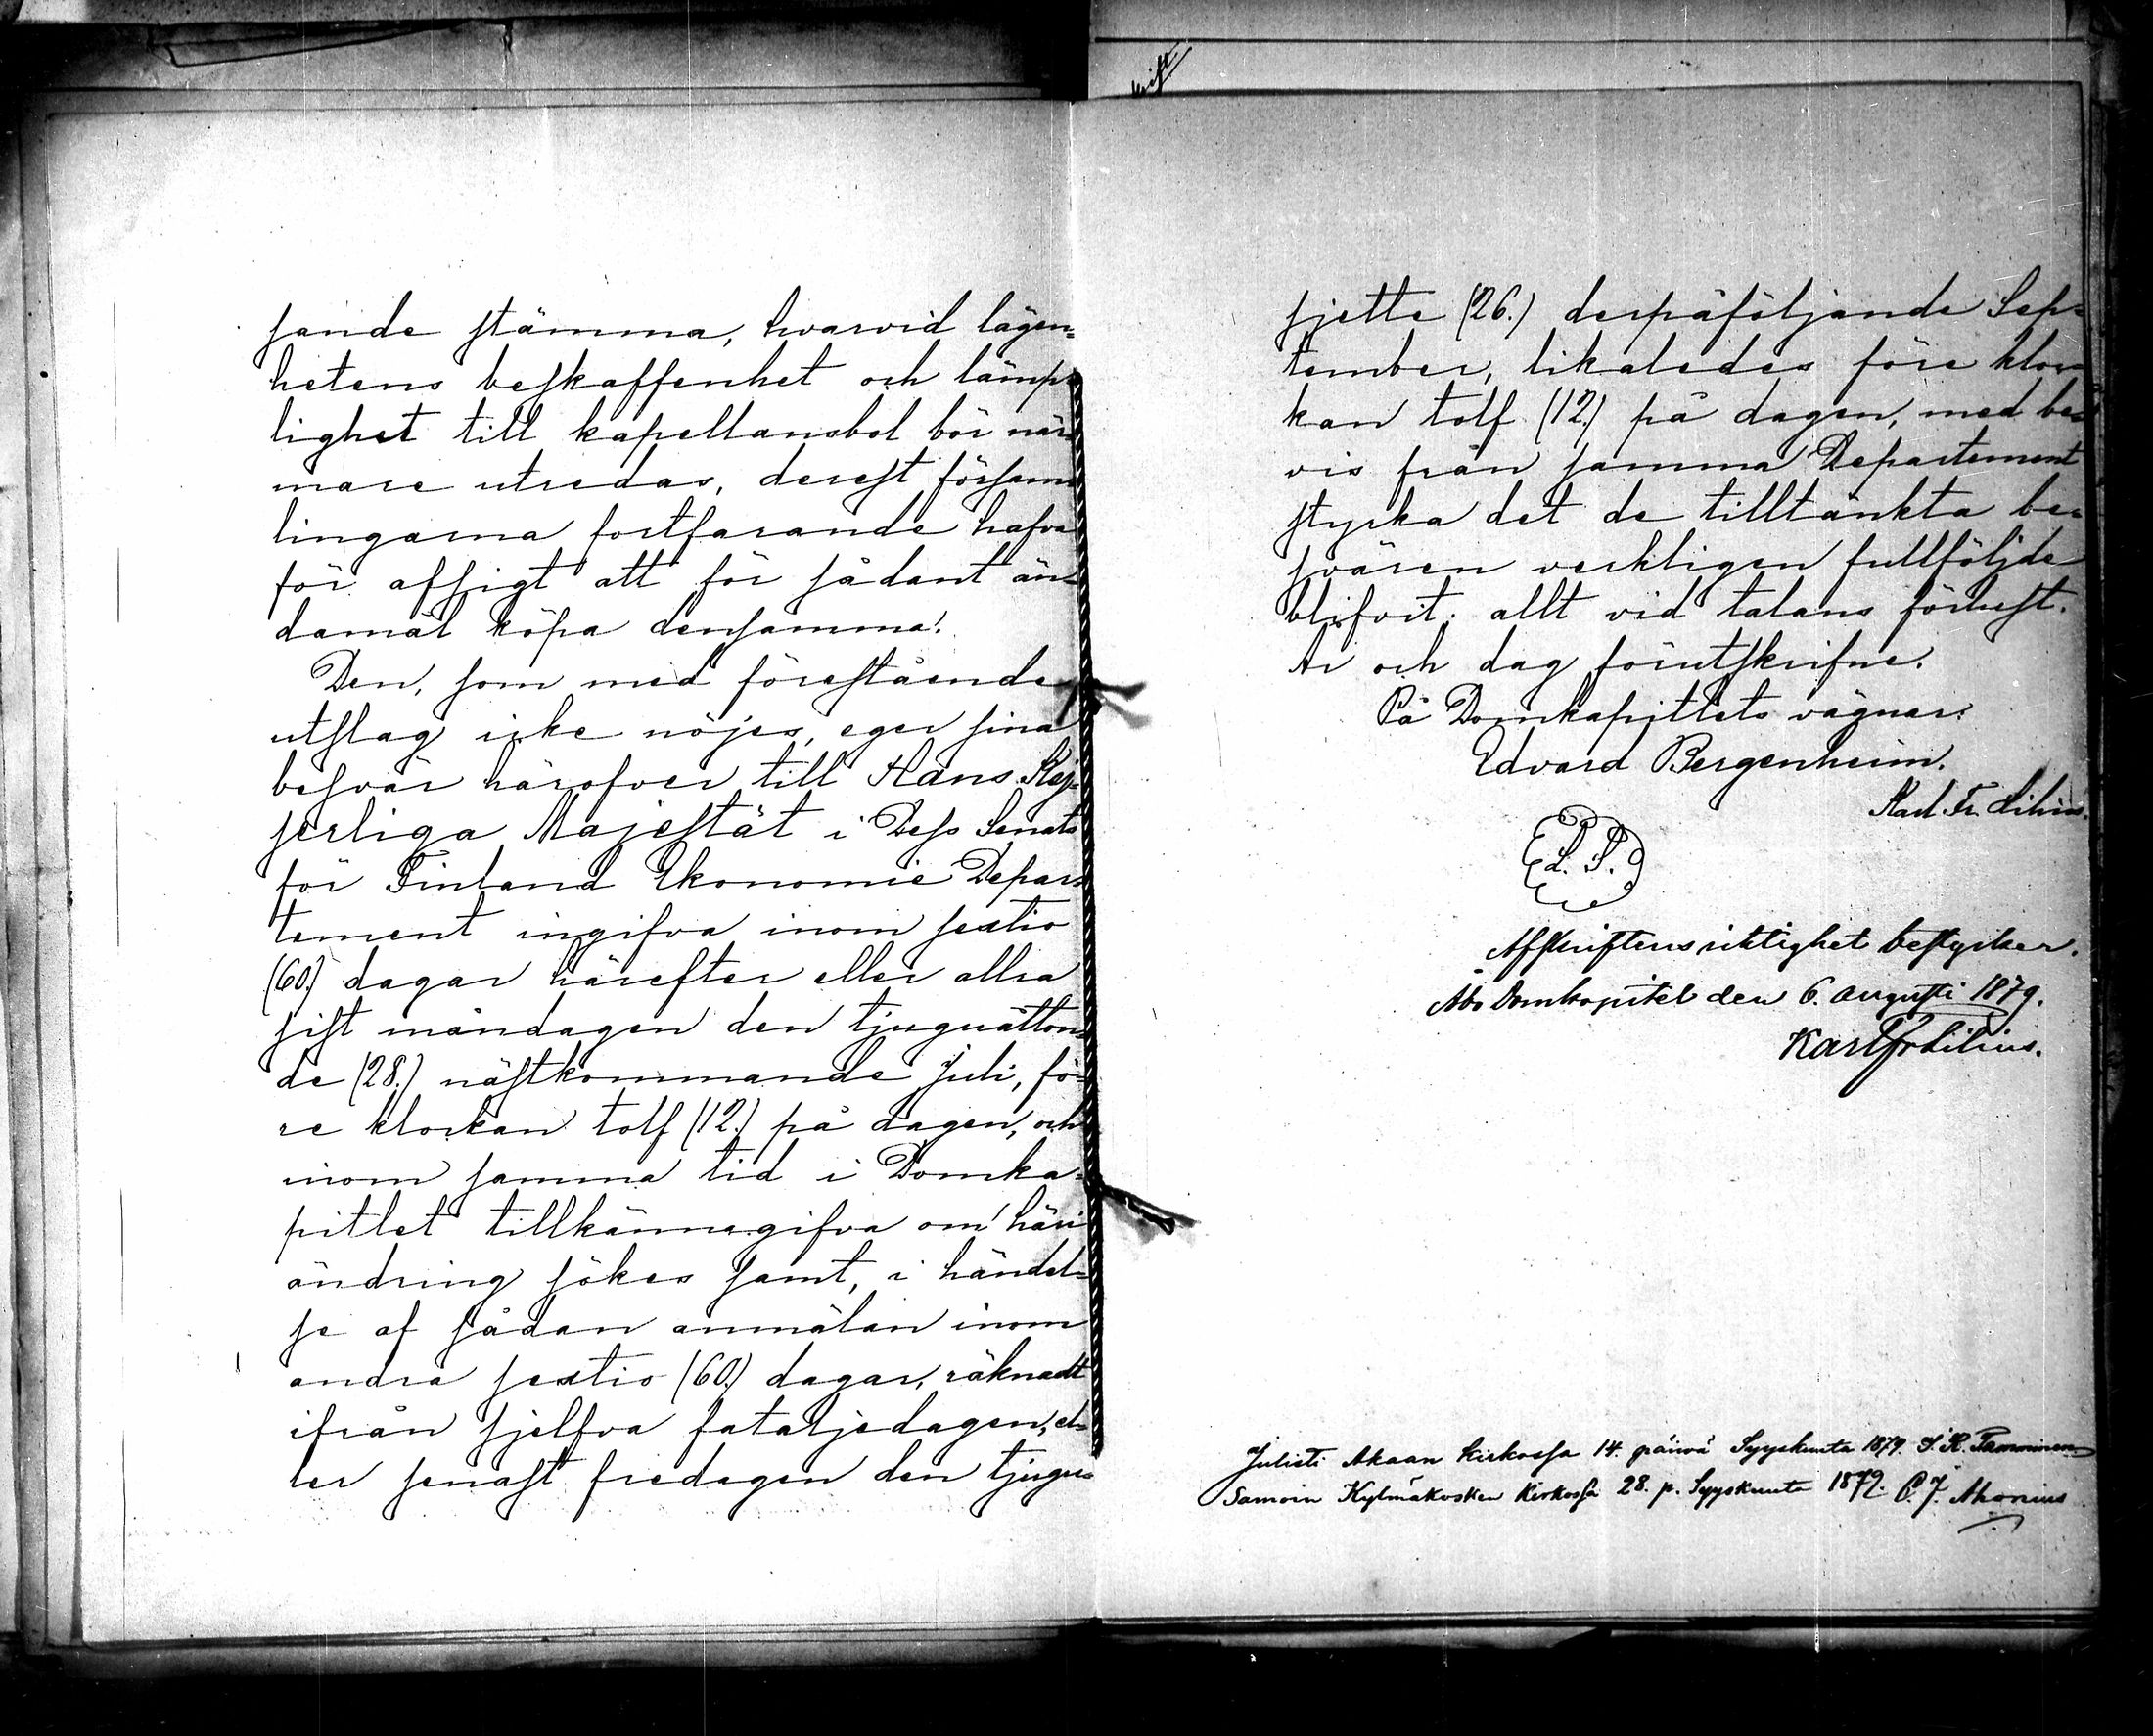 sande stämma, hvarvid lägen=
hetens beskaffenhet och lämp=
lighet till kapellansbol bör när=
mare utredas, derest försam=
lingarna fortfarande hafva
för afsigt att för sådant än=
damål köpa densamma!
Den, som med förestående
utslag icke nöjes, eger sina
besvär häröfver till Hans Kej=
serliga Majestät i Dess Senats
för Finland Ekonomie Depar=
tement ingifva inom sextio
(60.) dagar härefter eller allra
sist måndagen den tjuguåtton=
de (28.) nästkommande Juli, fö=
re klockan tolf (12.) på dagen, och
inom samma tid i Domka=
pitlet tillkännagifva om häri
ändring sökes samt, i händel=
se af sådan anmälan inom
andra sextio (60.) dagar, räknadt
ifrån sjelfva fataljedagen, el=
ler senast fredagen den tjugu=
sjette (26.) derpåföljande Sep=
tember, likaledes före kloc=
kan tolf (12.) på dagen, med be=
vis från samma Departement
styrka det de tilltänkta be=
svären verkligen fullföljde
blifvit; allt vid talans förlust.
År och dag förutskrifne.
På Domkapitlets vägnar:
Edvard Bergenheim.
Karl Fr. Lilius.
L. S.
Afskriftens riktighet bestyrker.
Åbo Domkapitel den 6. Augusti 1879.
Karl Fr Lilius.
Julisti Akaan Kirkossa 14. päivä Syyskuuta 1879. J. K. Tamminen
Samoin Kylmäkosken Kirkossa 28. p. Syyskuuta 1879. C. J. Ahonius